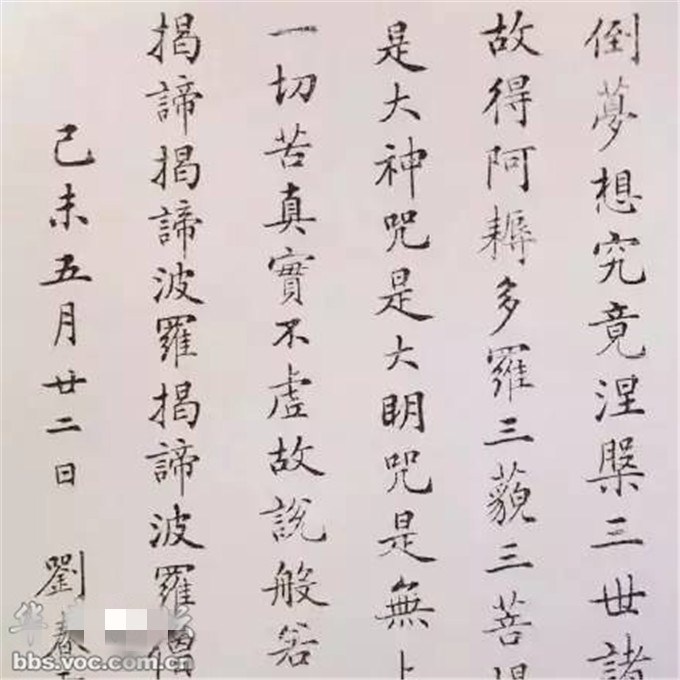 倒夢想究竟涅槃三世諸
故得阿耨多羅三藐三菩提
是大神咒是大明咒是無上
一切苦真實不虛故說般若
揭諦揭諦波羅揭諦波羅僧
己未五月廿二日 劉春
華
bbs.voc.com.cn